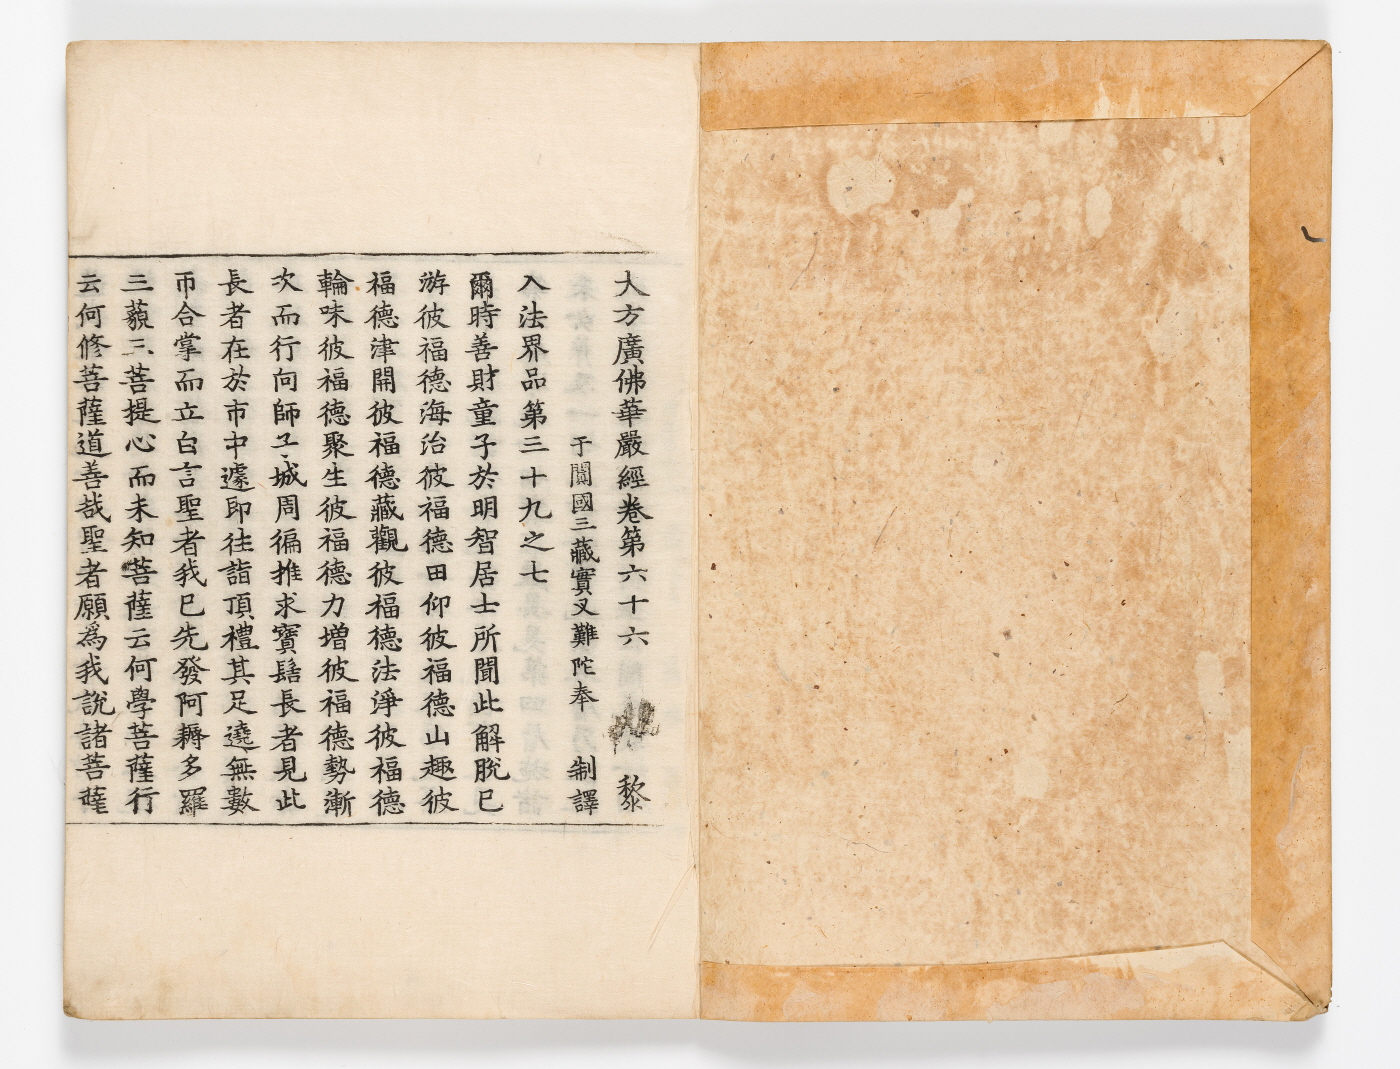 大方廣佛華嚴經卷第六十六 黎
于闐國三藏實叉難陀奉 制譯
入法界品第三十九之七
爾時善財童子於明智居士所聞此解脫已
游彼福德海治彼福德田仰彼福德山趣彼
福德津開彼福德藏觀彼福德法淨彼福德
輪味彼福德聚生彼福德力增彼福德勢漸
次而行向師子城周徧推求寶髻長者見此
長者在於市中遽即往詣頂禮其足遶無數
帀合掌而立白言聖者我已先發阿耨多羅
三藐三菩提心而未知菩薩云何學菩薩行
云何修菩薩道善哉聖者願為我說諸菩薩